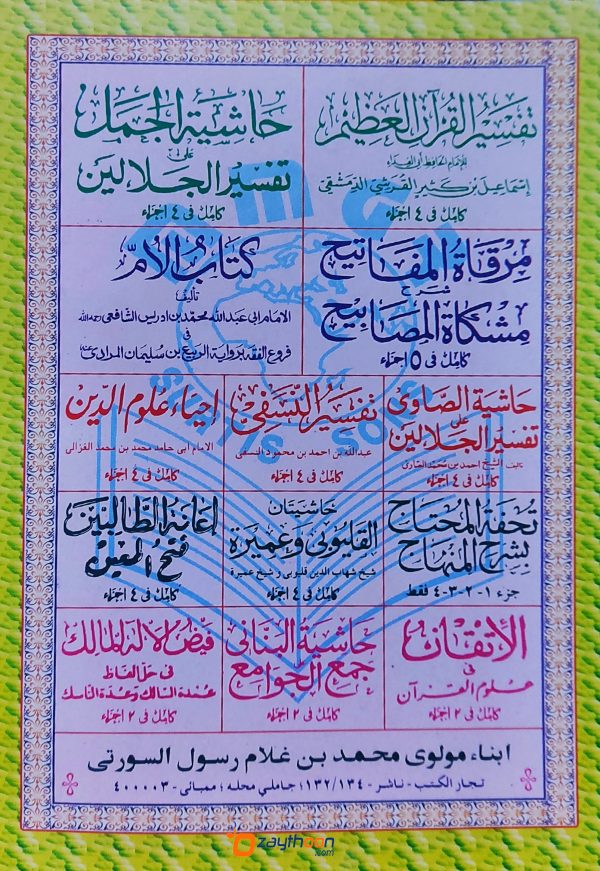 تفسير القرآن العظيم
للإمام الحافظ أبي الفداء
إسماعيل بن كثير القرشي الدمشقي
كامل في ٤ اجزاء
حاشية الجمل
على
تفسير الجلالين
كامل في ٤ اجزاء
مرقاة المفاتيح
شرح
مشكاة المصابيح
كامل في ٥ اجزاء
كتاب الأم
تأليف
الامام ابى عبد الله محمد بن ادريس الشافعى رحمه الله
فى
فروع الفقه برواية الربيع بن سليمان المرادى
حاشية الصاوى
على
تفسير الجلالين
تأليف الشيخ احمد بن محمد الصاوى
كامل في ٤ اجزاء
تفسير النسفى
عبدالله بن احمد بن محمود النسفى
كامل في ٤ اجزاء
إحياء علوم الدين
الامام ابى حامد محمد بن محمد الغزالى
كامل في ٤ اجزاء
تحفة المحتاج
بشرح المنهاج
جزء ١-٢-٣-٤ فقط
حاشيتان
القليوبى وعميرة
شيخ شهاب الدين قليوبى و شيخ عميرة
كامل في ٤ اجزاء
إعانة الطالبين
فتح المعين
كامل في ٤ اجزاء
الإتقان
فى
علوم القرآن
كامل في ٢ اجزاء
حاشية البنانى
جمع الجوامع
كامل في ٢ اجزاء
فيض الإله المالك
فى حل الفاظ
عمدة السالك وعدة الناسك
كامل في ٢ اجزاء
ابناء مولوى محمد بن غلام رسول السورتى
تجار الكتب - ناشر - ١٣٢/١٣٤؛ جاملي محله؛ ممبائى - ٤٠٠٠٠٣
zaythoon
.com